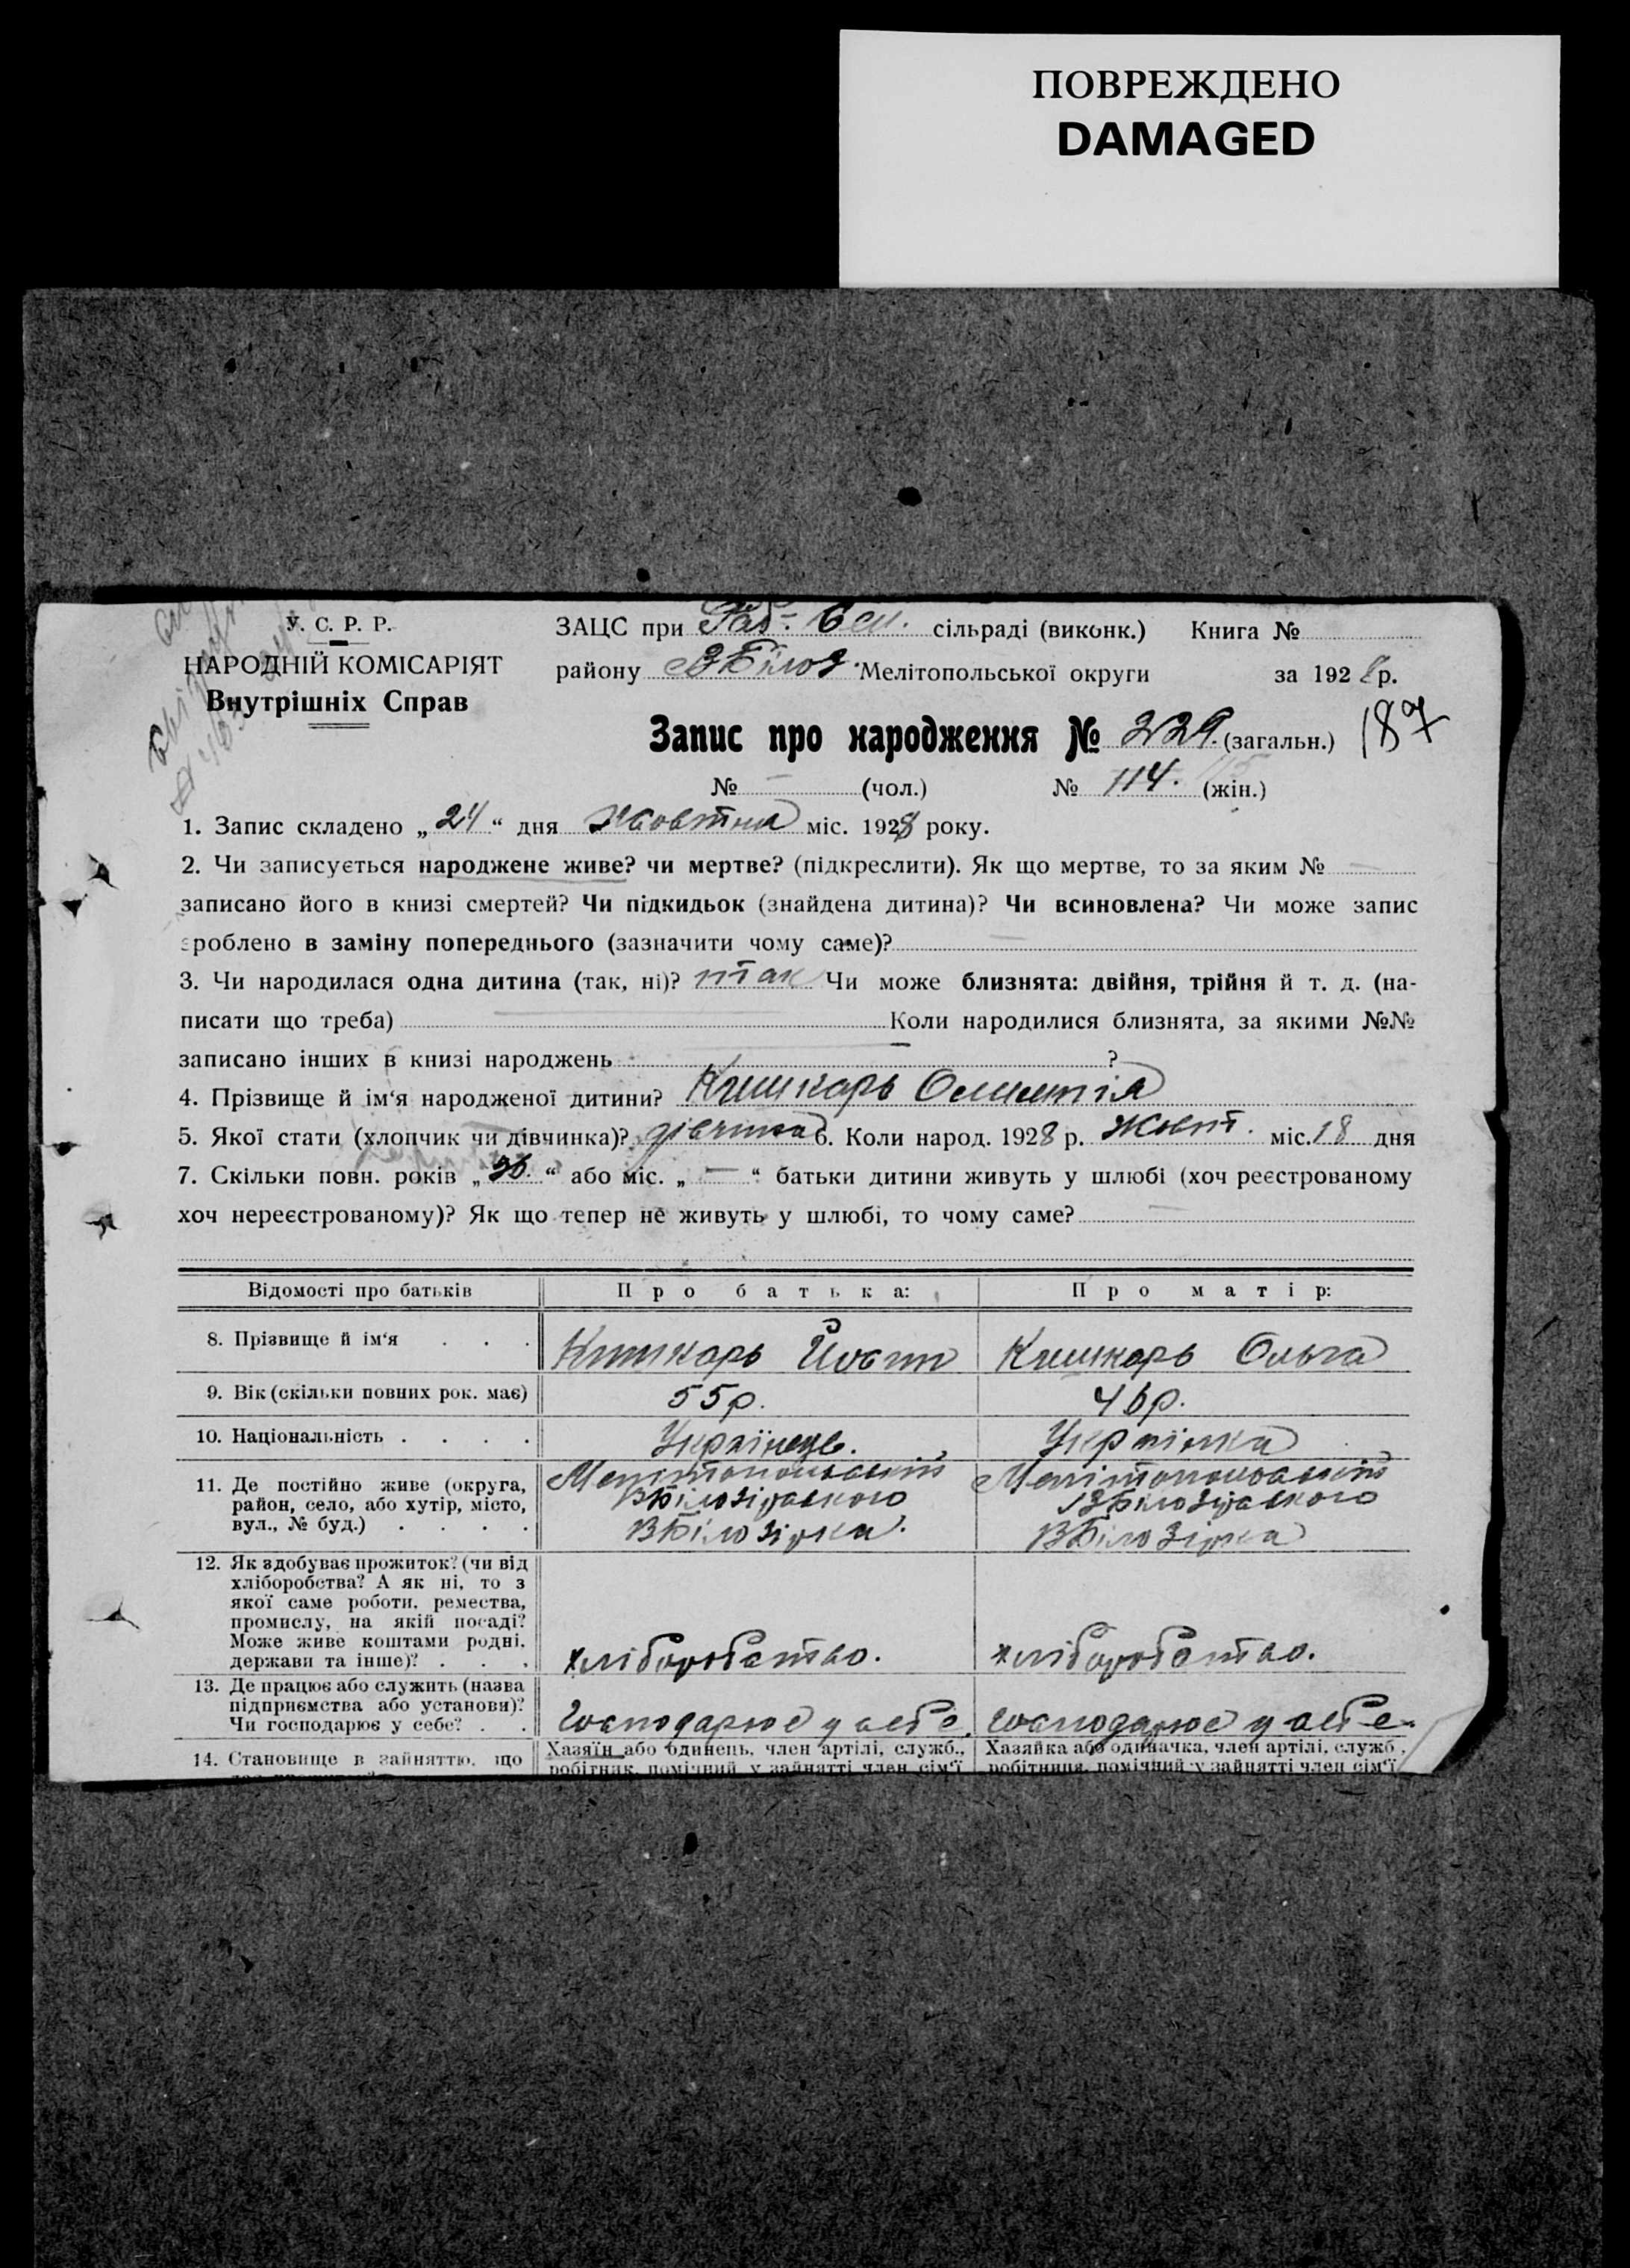 ПОВРЕЖДЕНО
DAMAGED
У. С. Р. Р.
НАРОДНІЙ КОМІСАРІЯТ
Внутрішніх Справ
ЗАЦС при сільраді (виконк.) Книга №
району ВБілоз. Мелітопольської округи за 1928 р.
Запис про народження № 229. (загальн.) 187
№ — (чол.) № 114. (жін.)
1. Запис складено „24“ дня Жовтня міс. 1928 року.
2. Чи записується народжене живе? чи мертве? (підкреслити). Як що мертве, то за яким № —
записано його в книзі смертей? Чи підкидьок (знайдена дитина)? Чи всиновлена? Чи може запис
зроблено в заміну попереднього (зазначити чому саме)? —
3. Чи народилася одна дитина (так, ні)? так Чи може близнята: двійня, трійня й т. д. (на-
писати що треба) — Коли народилися близнята, за якими №№
записано інших в книзі народжень — ?
4. Прізвище й ім‘я народженої дитини? Кишкарь Олимпія
5. Якої стати (хлопчик чи дівчинка)? дівчинка 6. Коли народ. 1928 р. Жовт. міс. 18 дня
7. Скільки повн. років „ “ або міс. „ — “ батьки дитини живуть у шлюбі (хоч реєстрованому
хоч нереєстрованому)? Як що тепер не живуть у шлюбі, то чому саме? —
Відомості про батьків Про батька: Про матір:
8. Прізвище й ім‘я . . . Кишкарь Йосип Кишкарь Ольга
9. Вік (скільки повних рок. має) 55 р. 46 р.
10. Національність . . . . Українець. Українка
11. Де постійно живе (округа, Мелітопольській Мелітопольській
район, село, або хутір, місто, ВБілозірського ВБілозірського
вул., № буд.) . . . . ВБілозірка. ВБілозірка
12. Як здобуває прожиток? (чи від
хліборобства? А як ні, то з
якої саме роботи, ремества,
промислу, на якій посаді?
Може живе коштами родні,
держави та інше)? . . . хліборобство. хліборобство.
13. Де працює або служить (назва
підприємства або установи)?
Чи господарює у себе? . . Господарює у себе. Господарює у себе.
14. Становище в зайняттю, що Хазяїн або одинець, член артілі, служб., Хазяйка або одиначка, член артілі, служб.,
робітник, помічний у зайнятті член сім‘ї робітниця, помічний у зайнятті член сім‘ї